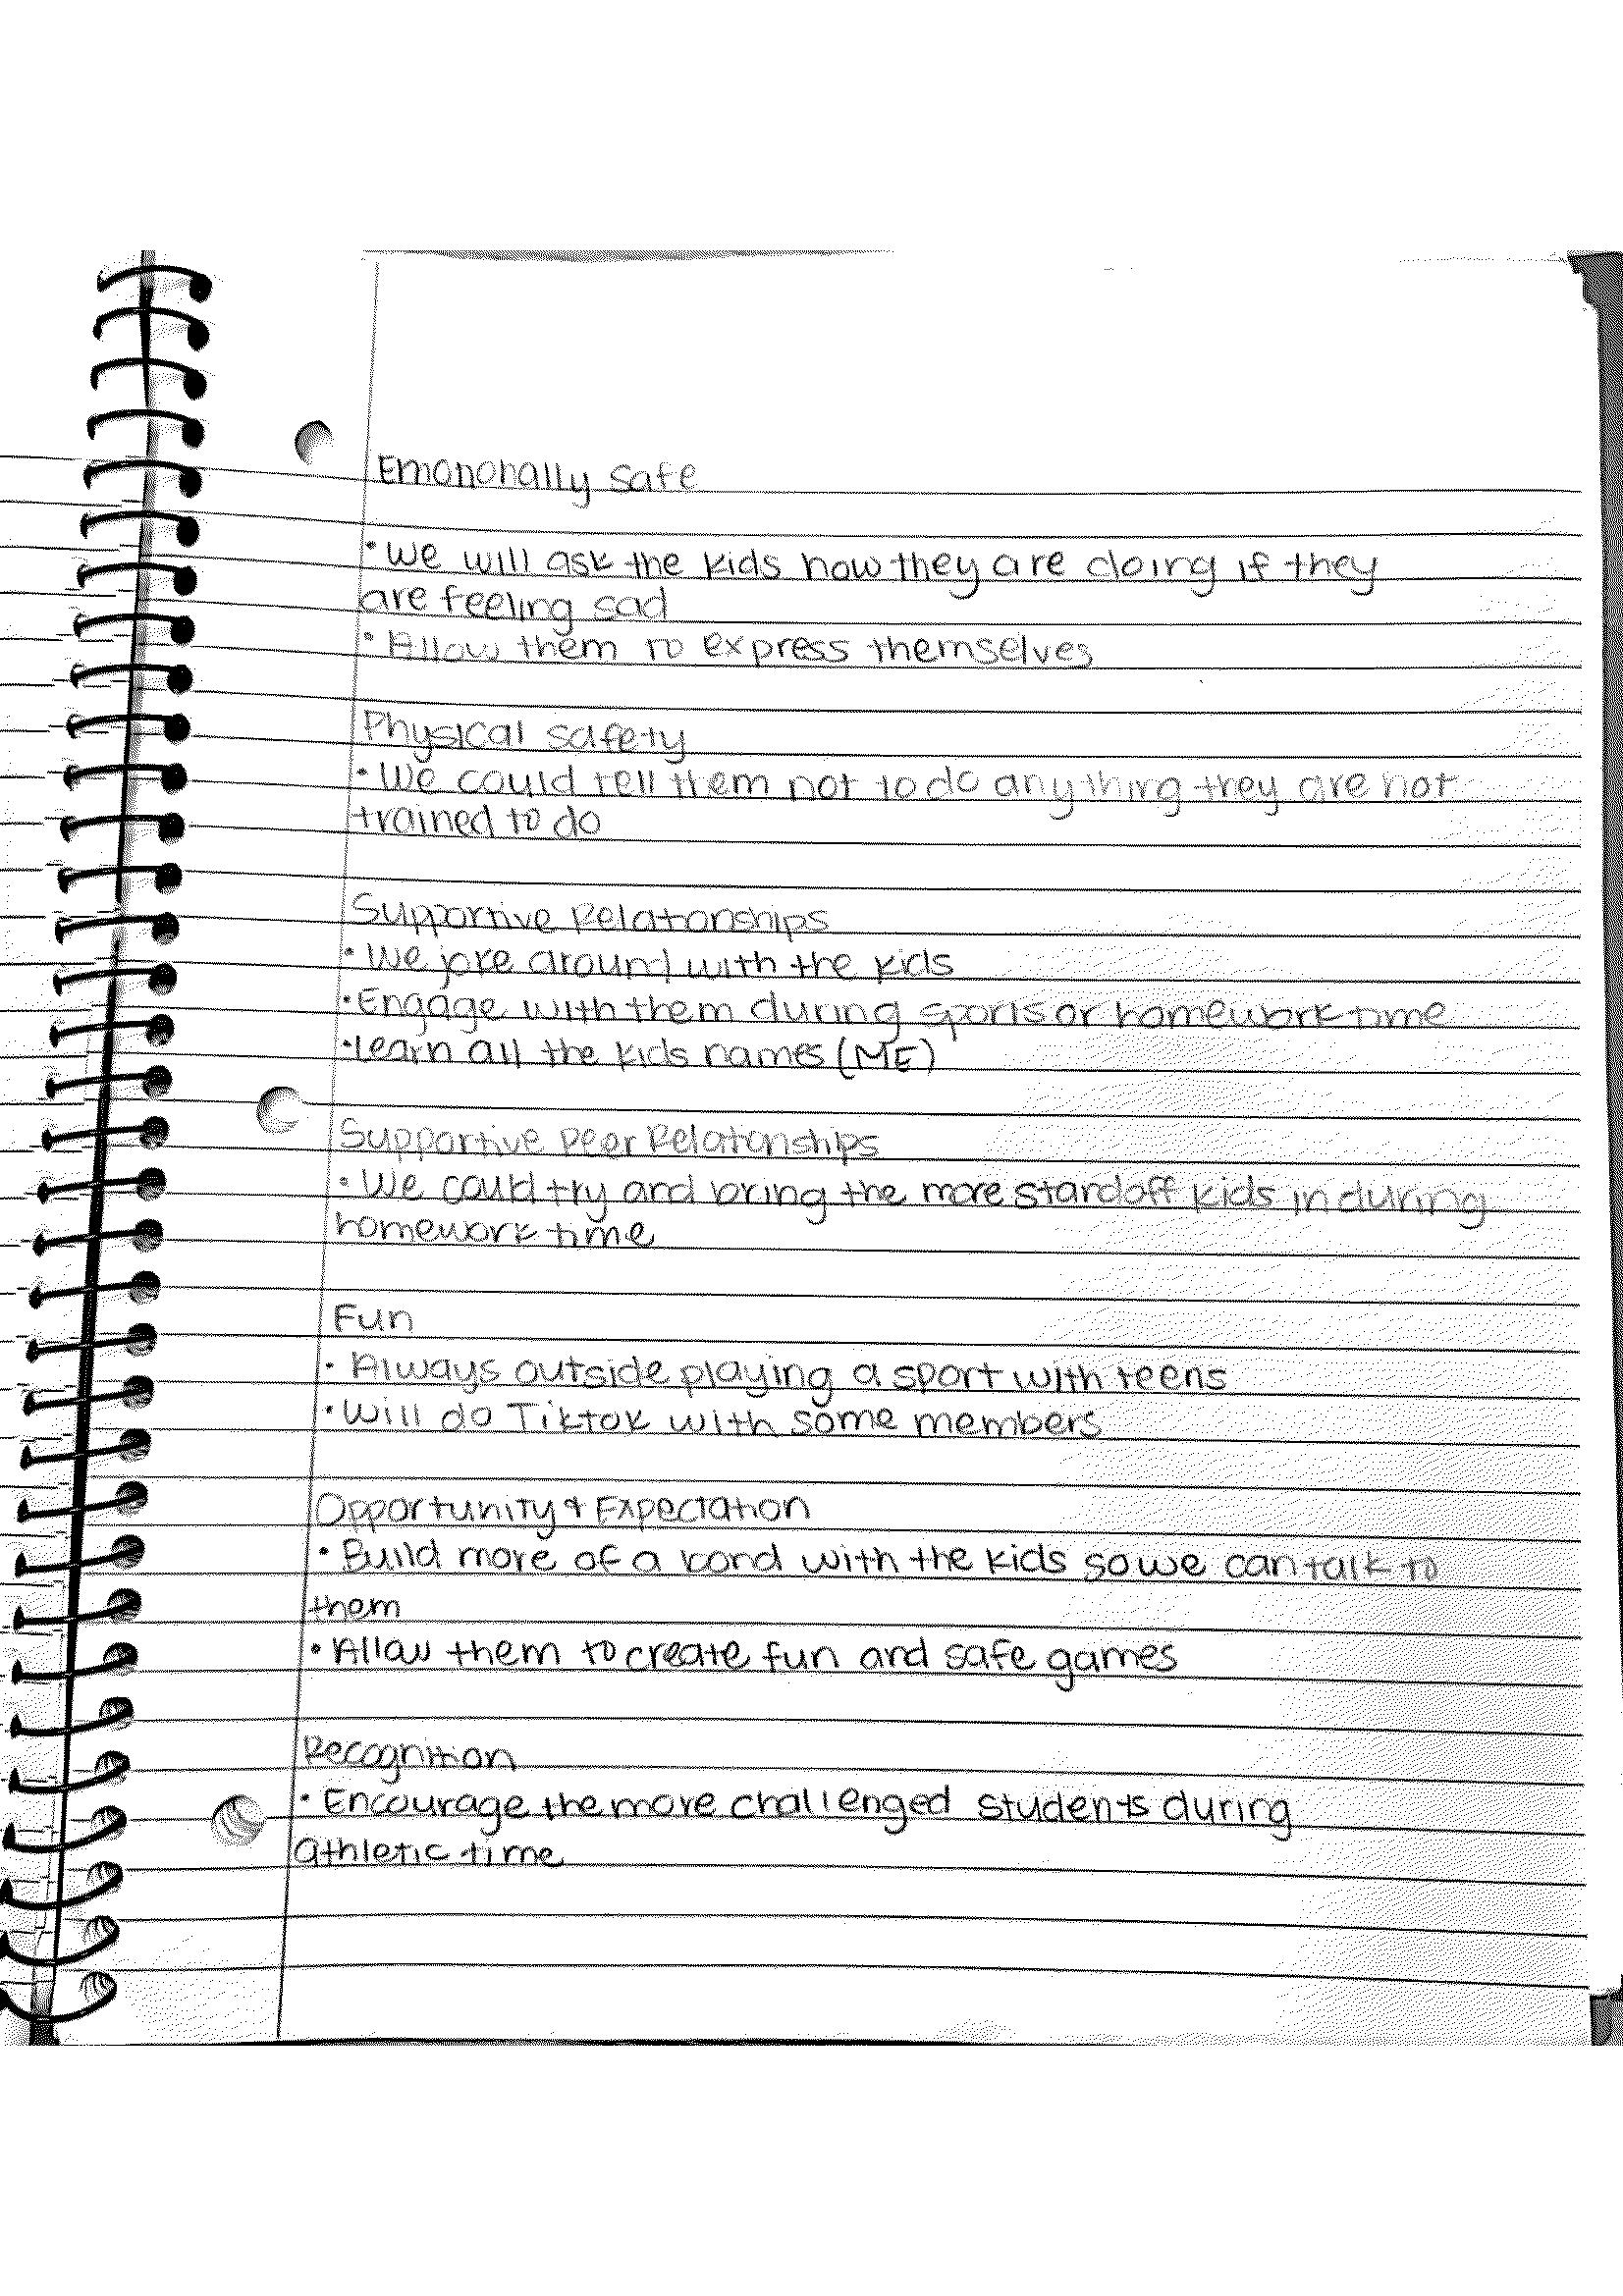 Emotionally safe
• We will ask the kids how they are doing if they
are feeling sad
• Allow them to express themselves
Physical safety
• We could tell them not to do anything they are not
trained to do
Supportive Relationships
• We joke around with the kids
• Engage with them during sports or homework time
• Learn all the kids names (ME)
Supportive Peer Relationships
• We could try and bring the more standoff kids in during
homework time
Fun
• Always outside playing a sport with teens
• Will do Tiktok with some members
Opportunity & Expectation
• Build more of a bond with the kids so we can talk to
them
• Allow them to create fun and safe games
Recognition
• Encourage the more challenged students during
athletic time